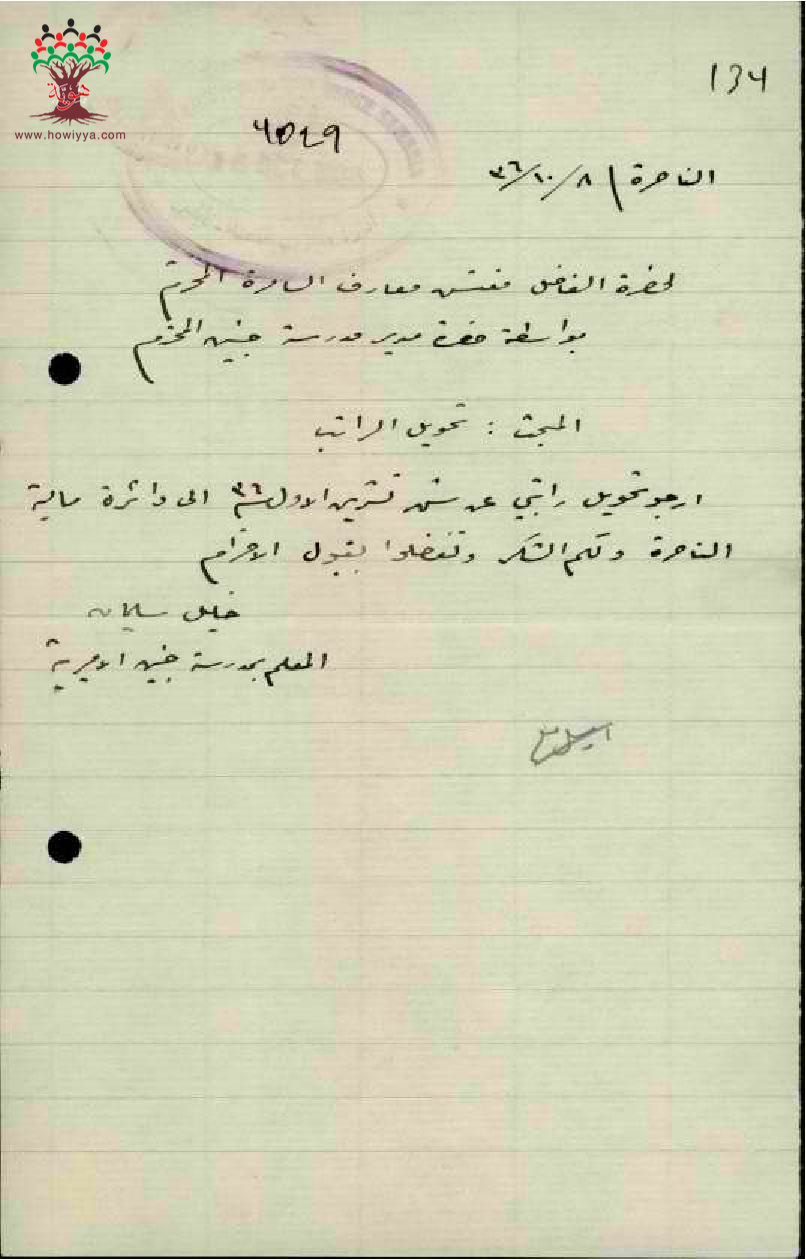 هوية
www.howiyya.com
134
4529
الناصرة / ٨/١٠/٣٦
لحضرة الفاضل مفتش معارف السامرة المحترم
بواسطة حضرة مدير مدرسة جنين المحترم
المبحث : تحويل الراتب
ارجو تحويل راتبي عن شهر تشرين الاول سنة ٣٦ الى دائرة مالية
الناصرة ولكم الشكر وتفضلوا بقبول الاحترام
خليل سليمان
المعلم بمدرسة جنين الاميرية